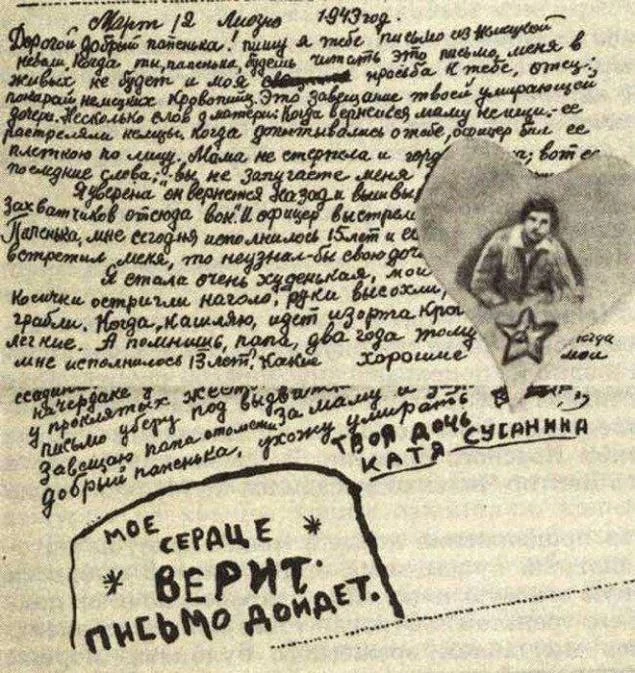 Март, 12 Лиозно 1943 год.
Дорогой добрый папенька! пишу я тебе письмо из немецкой
неволи. Когда ты, папенька, будешь читать это письмо, меня в
живых не будет и моя просьба к тебе, отец:
покарай немецких кровопийц. Это завещание твоей умирающей
дочери. Несколько слов о матери: Когда вернешься маму не ищи. ее
растреляли немцы. Когда допытывались о тебе, офицер бил ее
плеткою по лицу. Мама не стерпела и горд а; вот ее
последние слова: „вы не запугаете меня
Я уверена он вернется назад и вышвыр
захватчиков отсюда вон. И офицер выстрел
Папенька, мне сегодня исполнилось 15 лет и ес
встретил меня, то неузнал-бы свою доч
Я стала очень худенькая, мои
косички остригли наголо, руки высохли,
грабли. Когда, кашляю, идет изорта кро
легкие. А помнишь, папа, два года тому когда
мне исполнилось 13 лет? Какие хорошие мои
ссадин
на чердаке у
у проклятых жест
письмо уберу под
Завещаю папа отомсти за маму и
добрый папенька, ухожу умирать
ТВОЯ ДОЧЬ
КАТЯ СУСАНИНА
МОЕ
СЕРДЦЕ
ВЕРИТ.
ПИСЬМО ДОЙДЕТ.